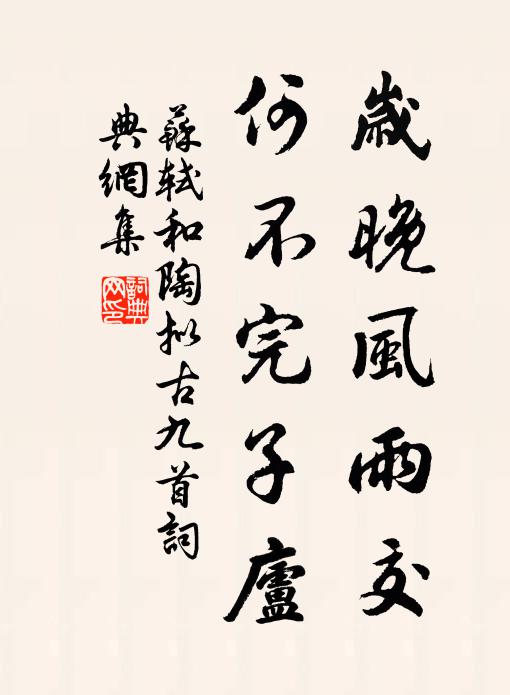 歲晚風雨交
何不完子廬
蘇軾和陶拟古九首詞
典網集
詞典
网印